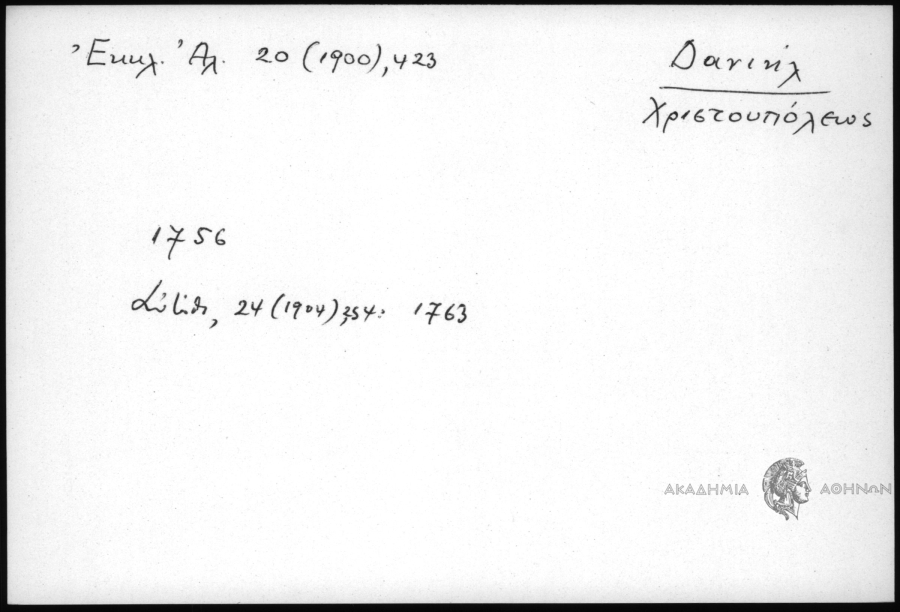 Ἐκκλ. Ἀλ. 20 (1900), 423
Δανιήλ
Χριστουπόλεως
1756
αὐτόθι, 24 (1904) 354: 1763
ΑΚΑΔΗΜΙΑ ΑΘΗΝΩΝ